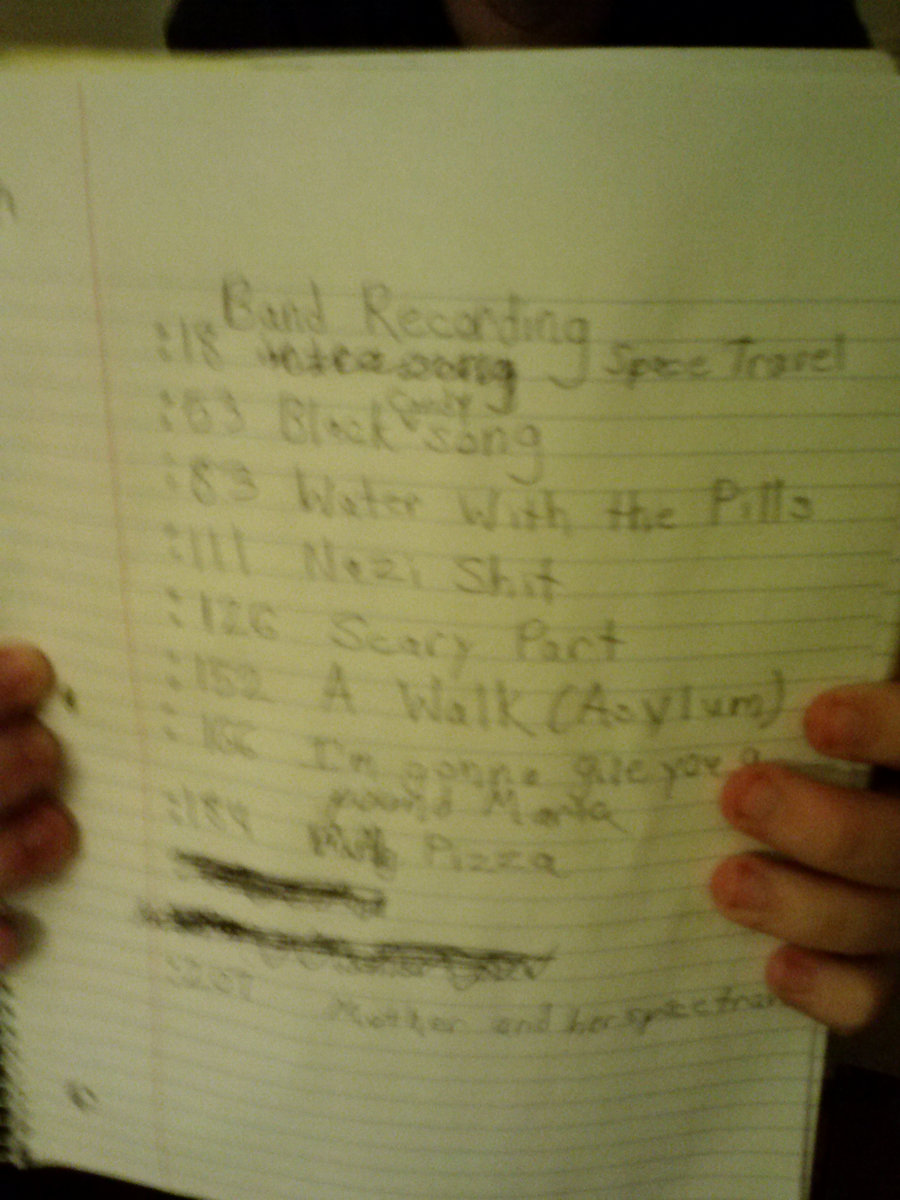 Band Recording
:18 intro song Space Travel
:53 Black Candy song
:83 Water With the Pills
:111 Nazi Shit
:126 Scary Part
:152 A Walk (Asylum)
:166 I'm gonna give you a
Mania
:184 Pizza
:207 Mother and her space